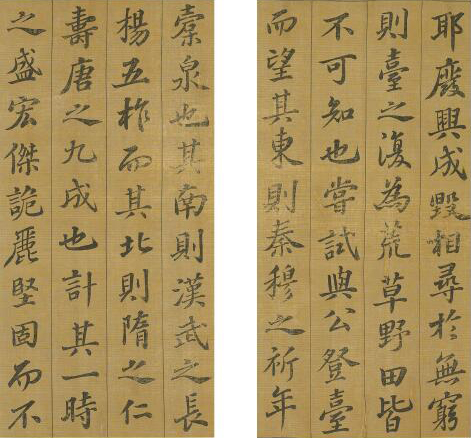 耶廢興成毀相尋於無窮
則臺之復為荒草野田皆
不可知也嘗試與公登臺
而望其東則秦穆之祈年
橐泉也其南則漢武之長
楊五柞而其北則隋之仁
壽唐之九成也計其一時
之盛宏傑詭麗堅固而不